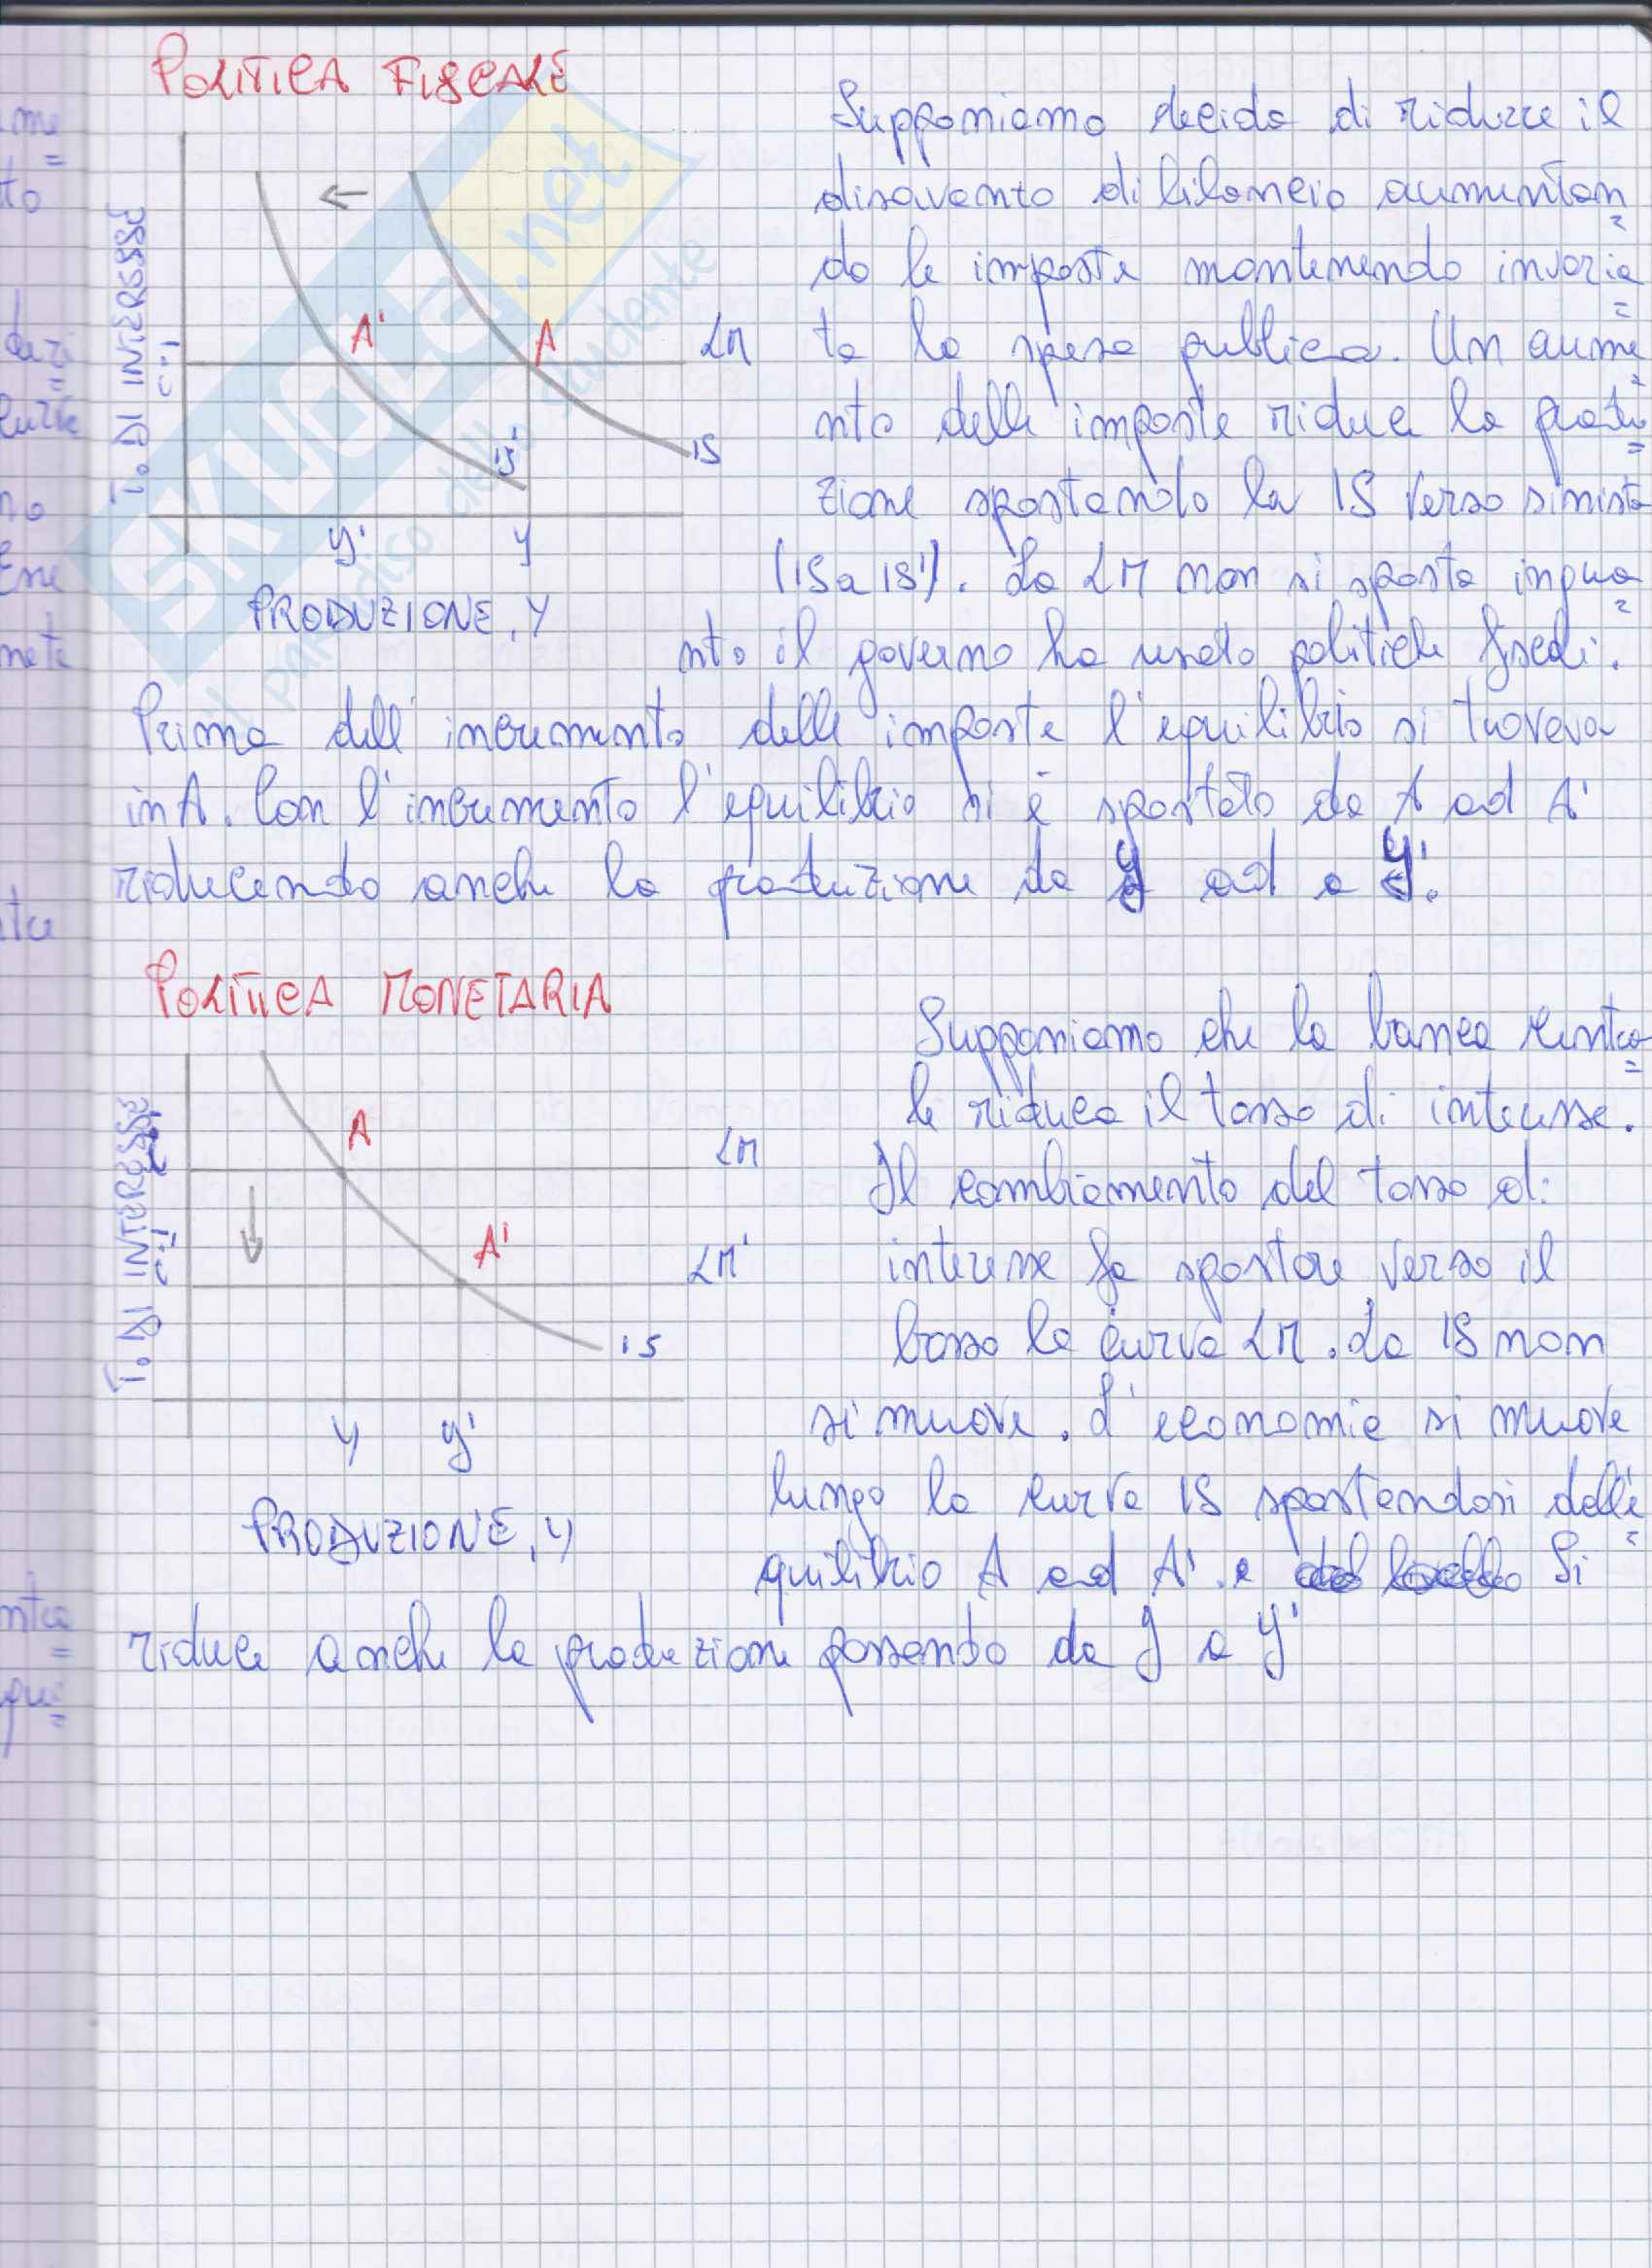 POLITICA FISCALE
Supponiamo decida di ridurre il
disavanzo di bilancio aumentan=
do le imposte mantenendo invaria=
ta la spesa pubblica. Un aume=
nto delle imposte riduce la produ=
zione spostando la IS verso sinistra
(IS a IS'). La LM non si sposta inqua=
nto il governo ha usato politiche fiscali.
Prima dell'incremento delle imposte l'equilibrio si trovava
in A. Con l'incremento l'equilibrio si è spostato da A ad A'
riducendo anche la produzione da y ad a y'.
T. DI INTERESSE
i=i
A'
A
LM
IS'
IS
y'
y
PRODUZIONE, Y
POLITICA MONETARIA
Supponiamo che la banca centra=
le riduca il tasso di interesse.
Il cambiamento del tasso di
interesse fa spostare verso il
basso la curva LM. La IS non
si muove. L'economia si muove
lungo la curva IS spostandosi dall'e=
quilibrio A ad A'. e Si
riduce anche la produzione passando da y a y'
T. DI INTERESSE
i=i
A
LM
A'
LM'
IS
y
y'
PRODUZIONE, Y
SKUOLA.net
il paradiso dello studente